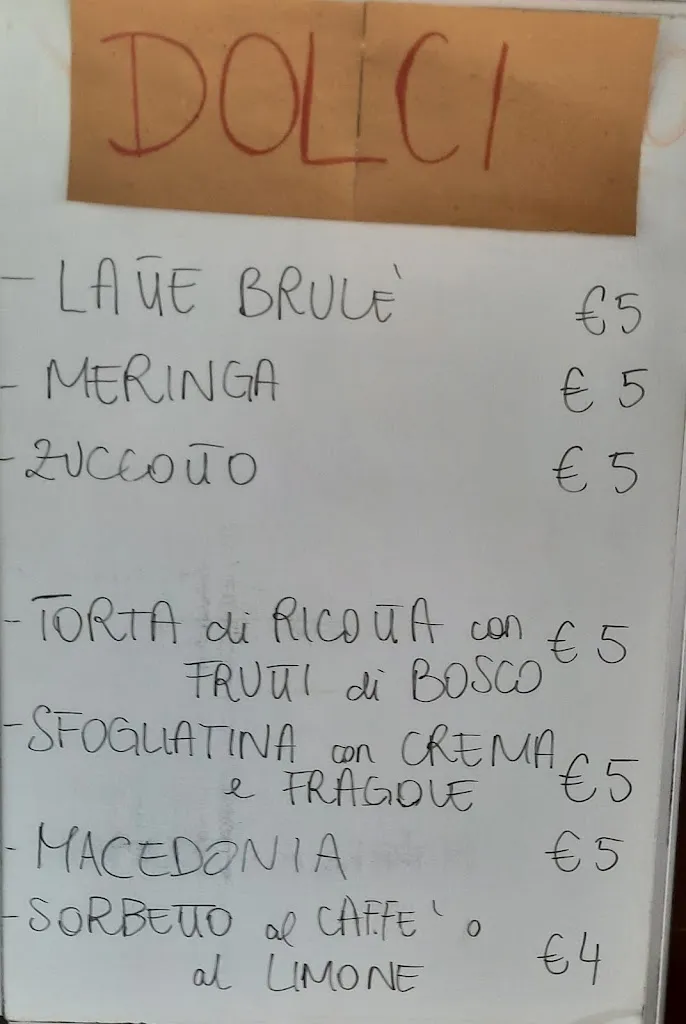 DOLCI
- LATTE BRULÈ €5
- MERINGA € 5
- ZUCCOTTO € 5
- TORTA di RICOTTA con € 5
FRUTTI di BOSCO
- SFOGLIATINA con CREMA
e FRAGOLE €5
- MACEDONIA €5
- SORBETTO al CAFFE' o
al LIMONE €4